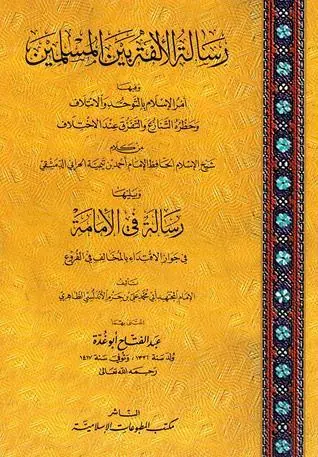 رسالة الألفة بين المسلمين
وفيها
أمر الإسلام بالتوحد والائتلاف
وحظره التنازع والتفرق عند الاختلاف
من كلام
شيخ الإسلام الحافظ الإمام أحمد بن تيمية الحراني الدمشقي
ويليها
رسالة في الإمامة
في جواز الاقتداء بالمخالف في الفروع
تأليف
الإمام المجتهد أبي محمد علي بن حزم الأندلسي الظاهري
اعتنى بهما
عبد الفتاح أبو غدة
ولد سنة ١٣٣٦ ، وتوفي سنة ١٤١٧
رحمه الله تعالى
الناشر
مكتب المطبوعات الإسلامية